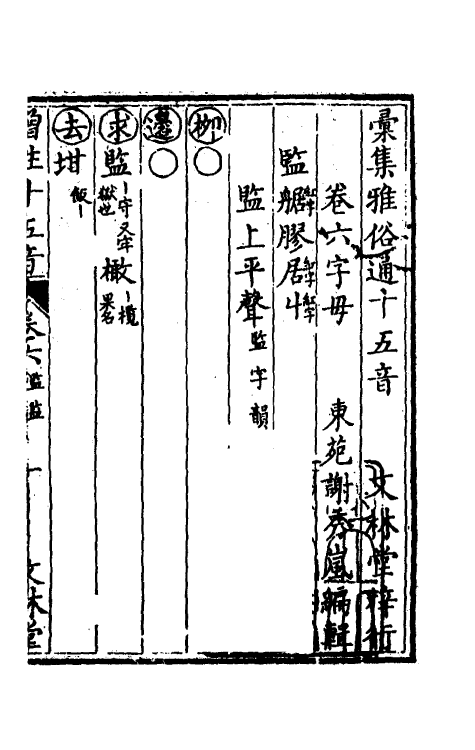 彙集雅俗通十五音 文林堂梓行
卷六字母 東苑謝秀嵐編輯
監艍膠居丩
監上平聲 監字韻
柳 ○
邊 ○
求 監 橄
去 坩 飯
增註十五音 卷六 監監 十 文林堂